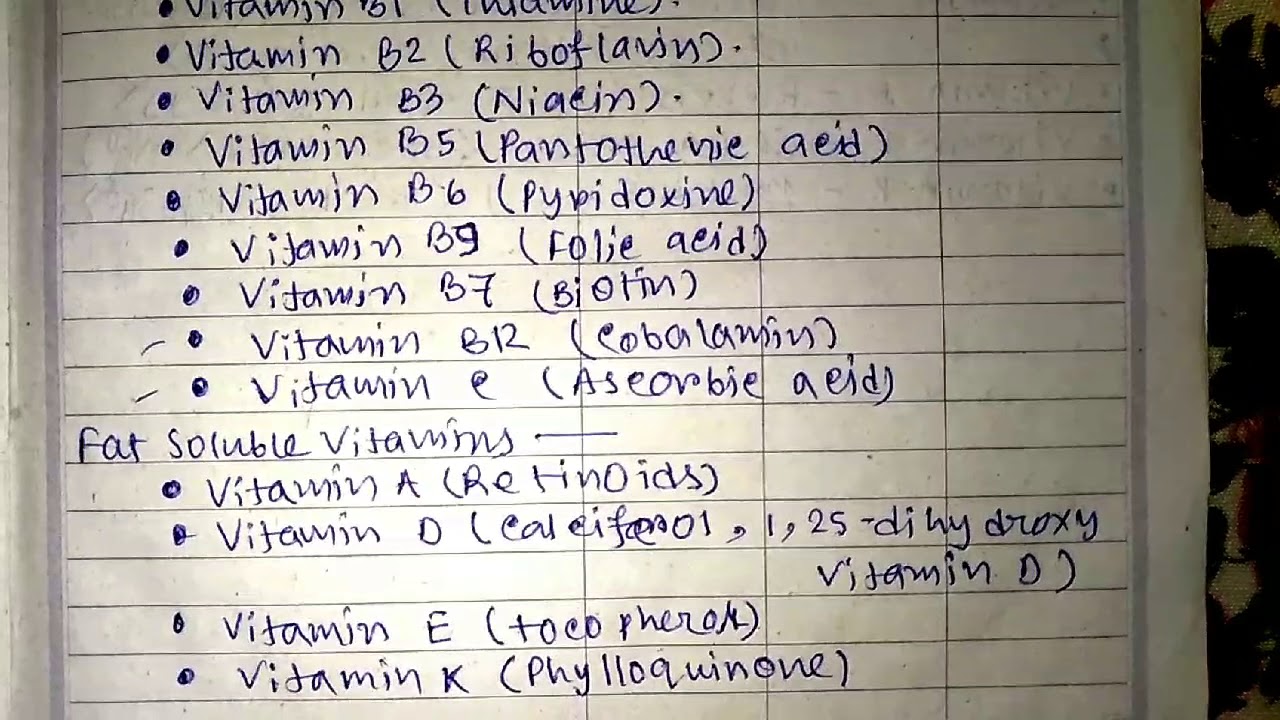 • Vitamin B1 (Thiamine).
• Vitamin B2 (Riboflavin).
• Vitamin B3 (Niacin).
• Vitamin B5 (Pantothenic acid)
• Vitamin B6 (Pyridoxine)
• Vitamin B9 (Folic acid)
• Vitamin B7 (Biotin)
– • Vitamin B12 (cobalamin)
– • Vitamin c (Ascorbic acid)
Fat Soluble Vitamins —
• Vitamin A (Retinoids)
• Vitamin D (calciferol, 1,25-dihydroxy
Vitamin D)
• Vitamin E (tocopherol)
• Vitamin K (Phylloquinone)